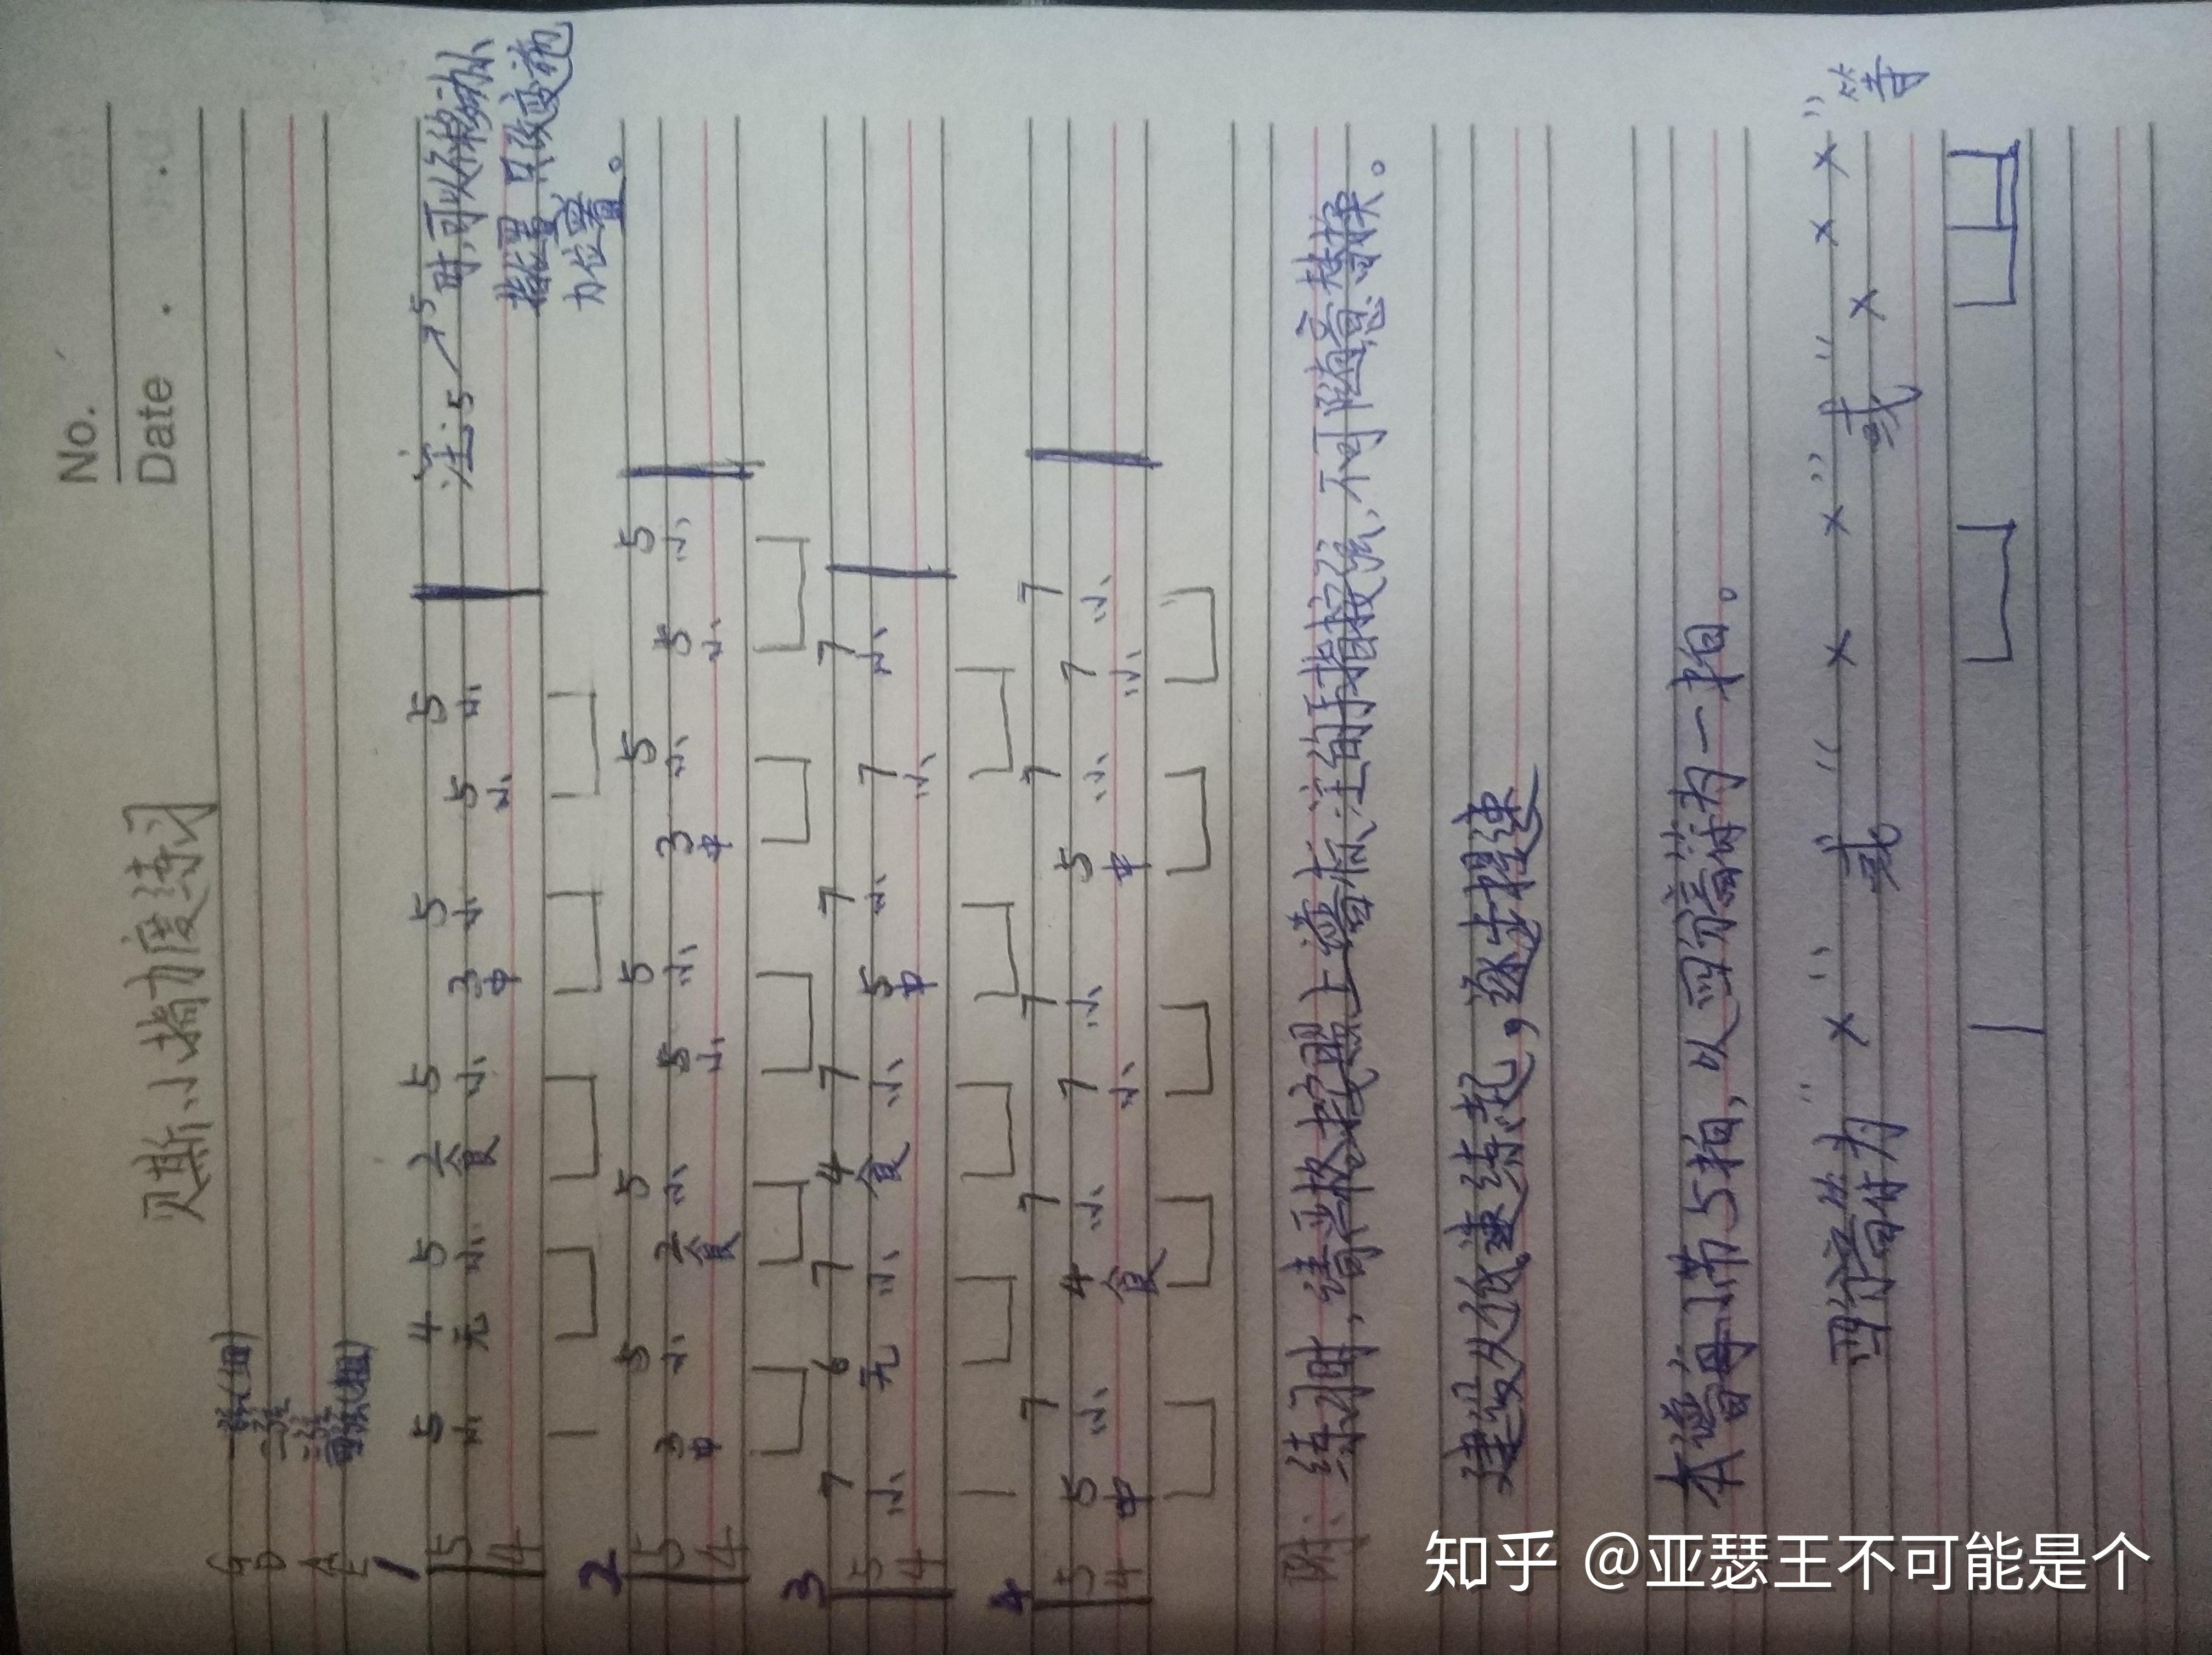 No.
Date
贝斯小指力度练习
G 一弦(细)
D 二弦
A 三弦
E 四弦(粗)
注:5→5时,可以不移动小
指位置,只改变施
力位置。
1
5 5 4 5 2 5 3 5 5 5
4 小 无 小 食 小 中 小 小 小
2
5 3 5 2 5 5 5 3 5 5 5
4 中 小 食 小 小 小 中 小 小 小
3
5 7 6 7 4 7 5 7 7 7
4 小 无 小 食 小 中 小 小 小
4
5 5 7 4 7 7 7 5 7 7 7
4 中 小 食 小 小 小 中 小 小 小
附:练习时,请严格按照上谱所注的手指练习,不可随意替换。
建议从低速练起,逐步提速
本谱每小节5拍,以四分音符为一拍。
四分音符为"X" 或 "X X" 或 "X X X"等
知乎 @亚瑟王不可能是个